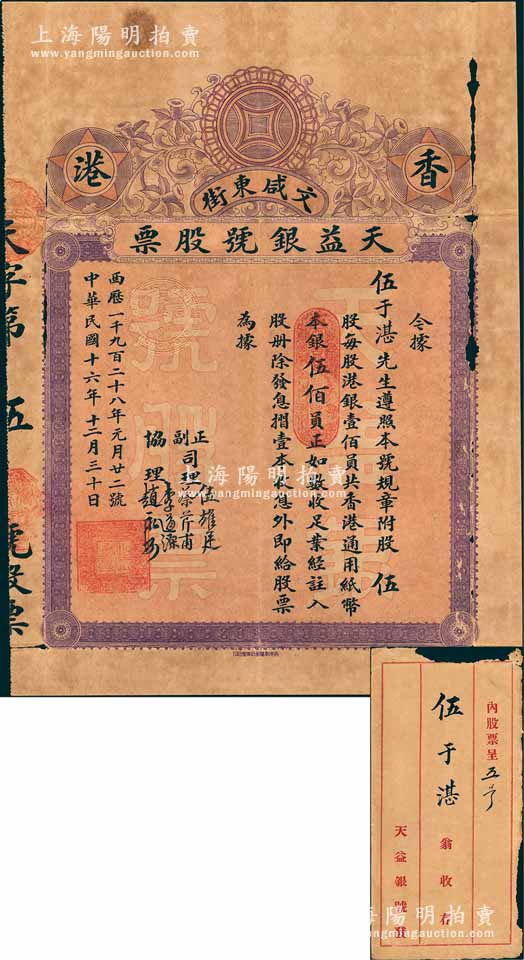 上海陽明拍賣
www.yangmingauction.com
香港
文咸東街
天益銀號股票
今據
伍于湛先生遵照本號規章附股伍
股每股港銀壹佰員共香港通用紙幣
本銀伍佰員正如數收足業經註入
股册除發息摺壹本收息外即給股票
為據
正
副
司理
雄廷
蔡芹甫
李道深
協理趙
西歷一千九百二十八年元月廿二號
中華民國十六年十二月三十日
天字第伍號股票
上海陽明拍賣
www.yangmingauction.com
內股票呈五號
伍于湛翁收存
天益銀號
上海陽明拍賣
www.yangmingauction.com